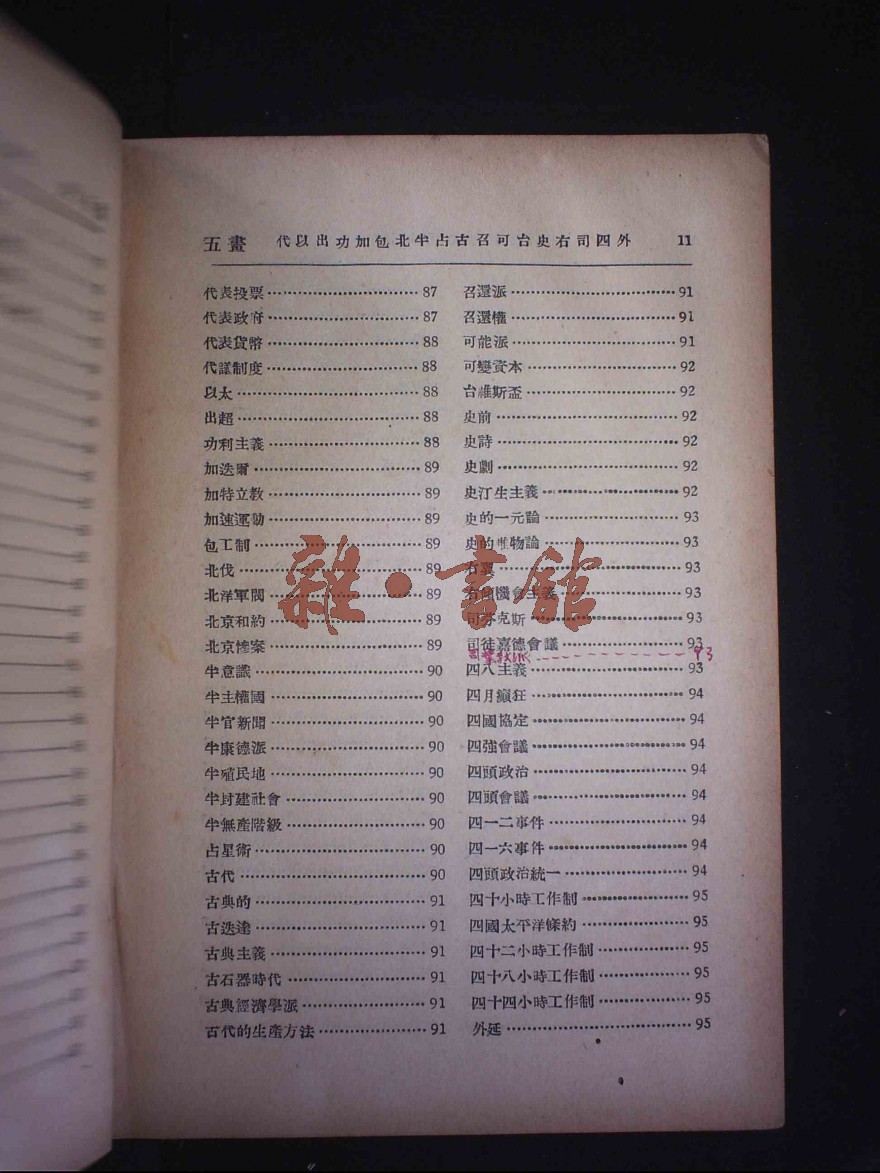 五畫 代以出功加包北半占古召可台史右司四外 11
代表投票 87
代表政府 87
代表貨幣 88
代議制度 88
以太 88
出超 88
功利主義 88
加迭爾 89
加特立教 89
加速運動 89
包工制 89
北伐 89
北洋軍閥 89
北京和約 89
北京慘案 89
半意識 90
半主權國 90
半官新聞 90
半康德派 90
半殖民地 90
半封建社會 90
半無產階級 90
占星術 90
古代 90
古典的 91
古迭達 91
古典主義 91
古石器時代 91
古典經濟學派 91
古代的生產方法 91
召還派 91
召還權 91
可能派 91
可變資本 92
台維斯盃 92
史前 92
史詩 92
史劇 92
史汀生主義 92
史的一元論 93
史的唯物論 93
右翼 93
右傾機會主義 93
司芬克斯 93
司徒嘉德會議 93
93
四八主義 93
四月癲狂 94
四國協定 94
四強會議 94
四頭政治 94
四頭會議 94
四一二事件 94
四一六事件 94
四頭政治統一 94
四十小時工作制 95
四國太平洋條約 95
四十二小時工作制 95
四十八小時工作制 95
四十四小時工作制 95
外延 95
雜·書館